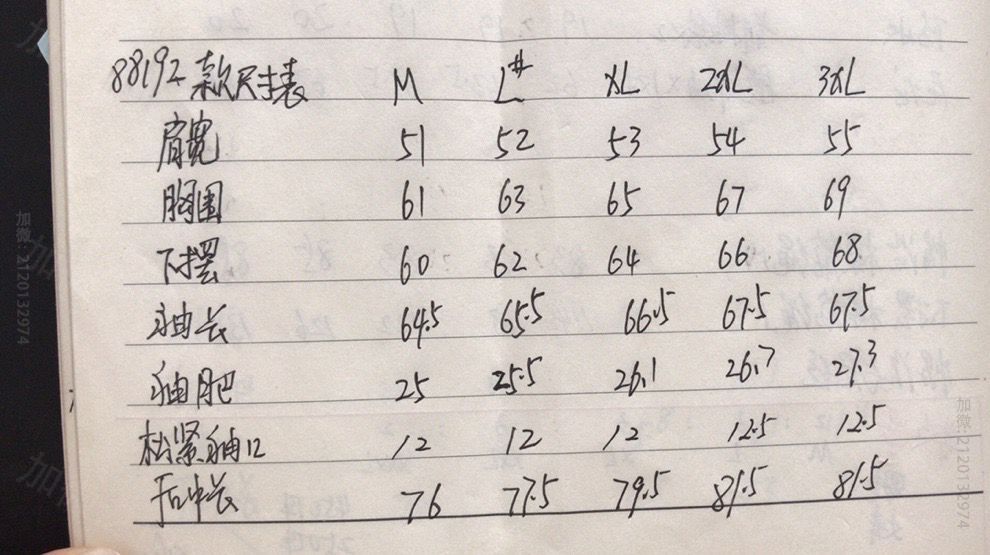 88192款尺寸表 M L# XL 2XL 3XL
肩宽 51 52 53 54 55
胸围 61 63 65 67 69
下摆 60 62 64 66 68
袖长 64.5 65.5 66.5 67.5 67.5
袖肥 25 25.5 26.1 26.7 27.3
松紧袖口 12 12 12 12.5 12.5
后中长 76 77.5 79.5 81.5 81.5
加微:2120132974
加微:2120132974